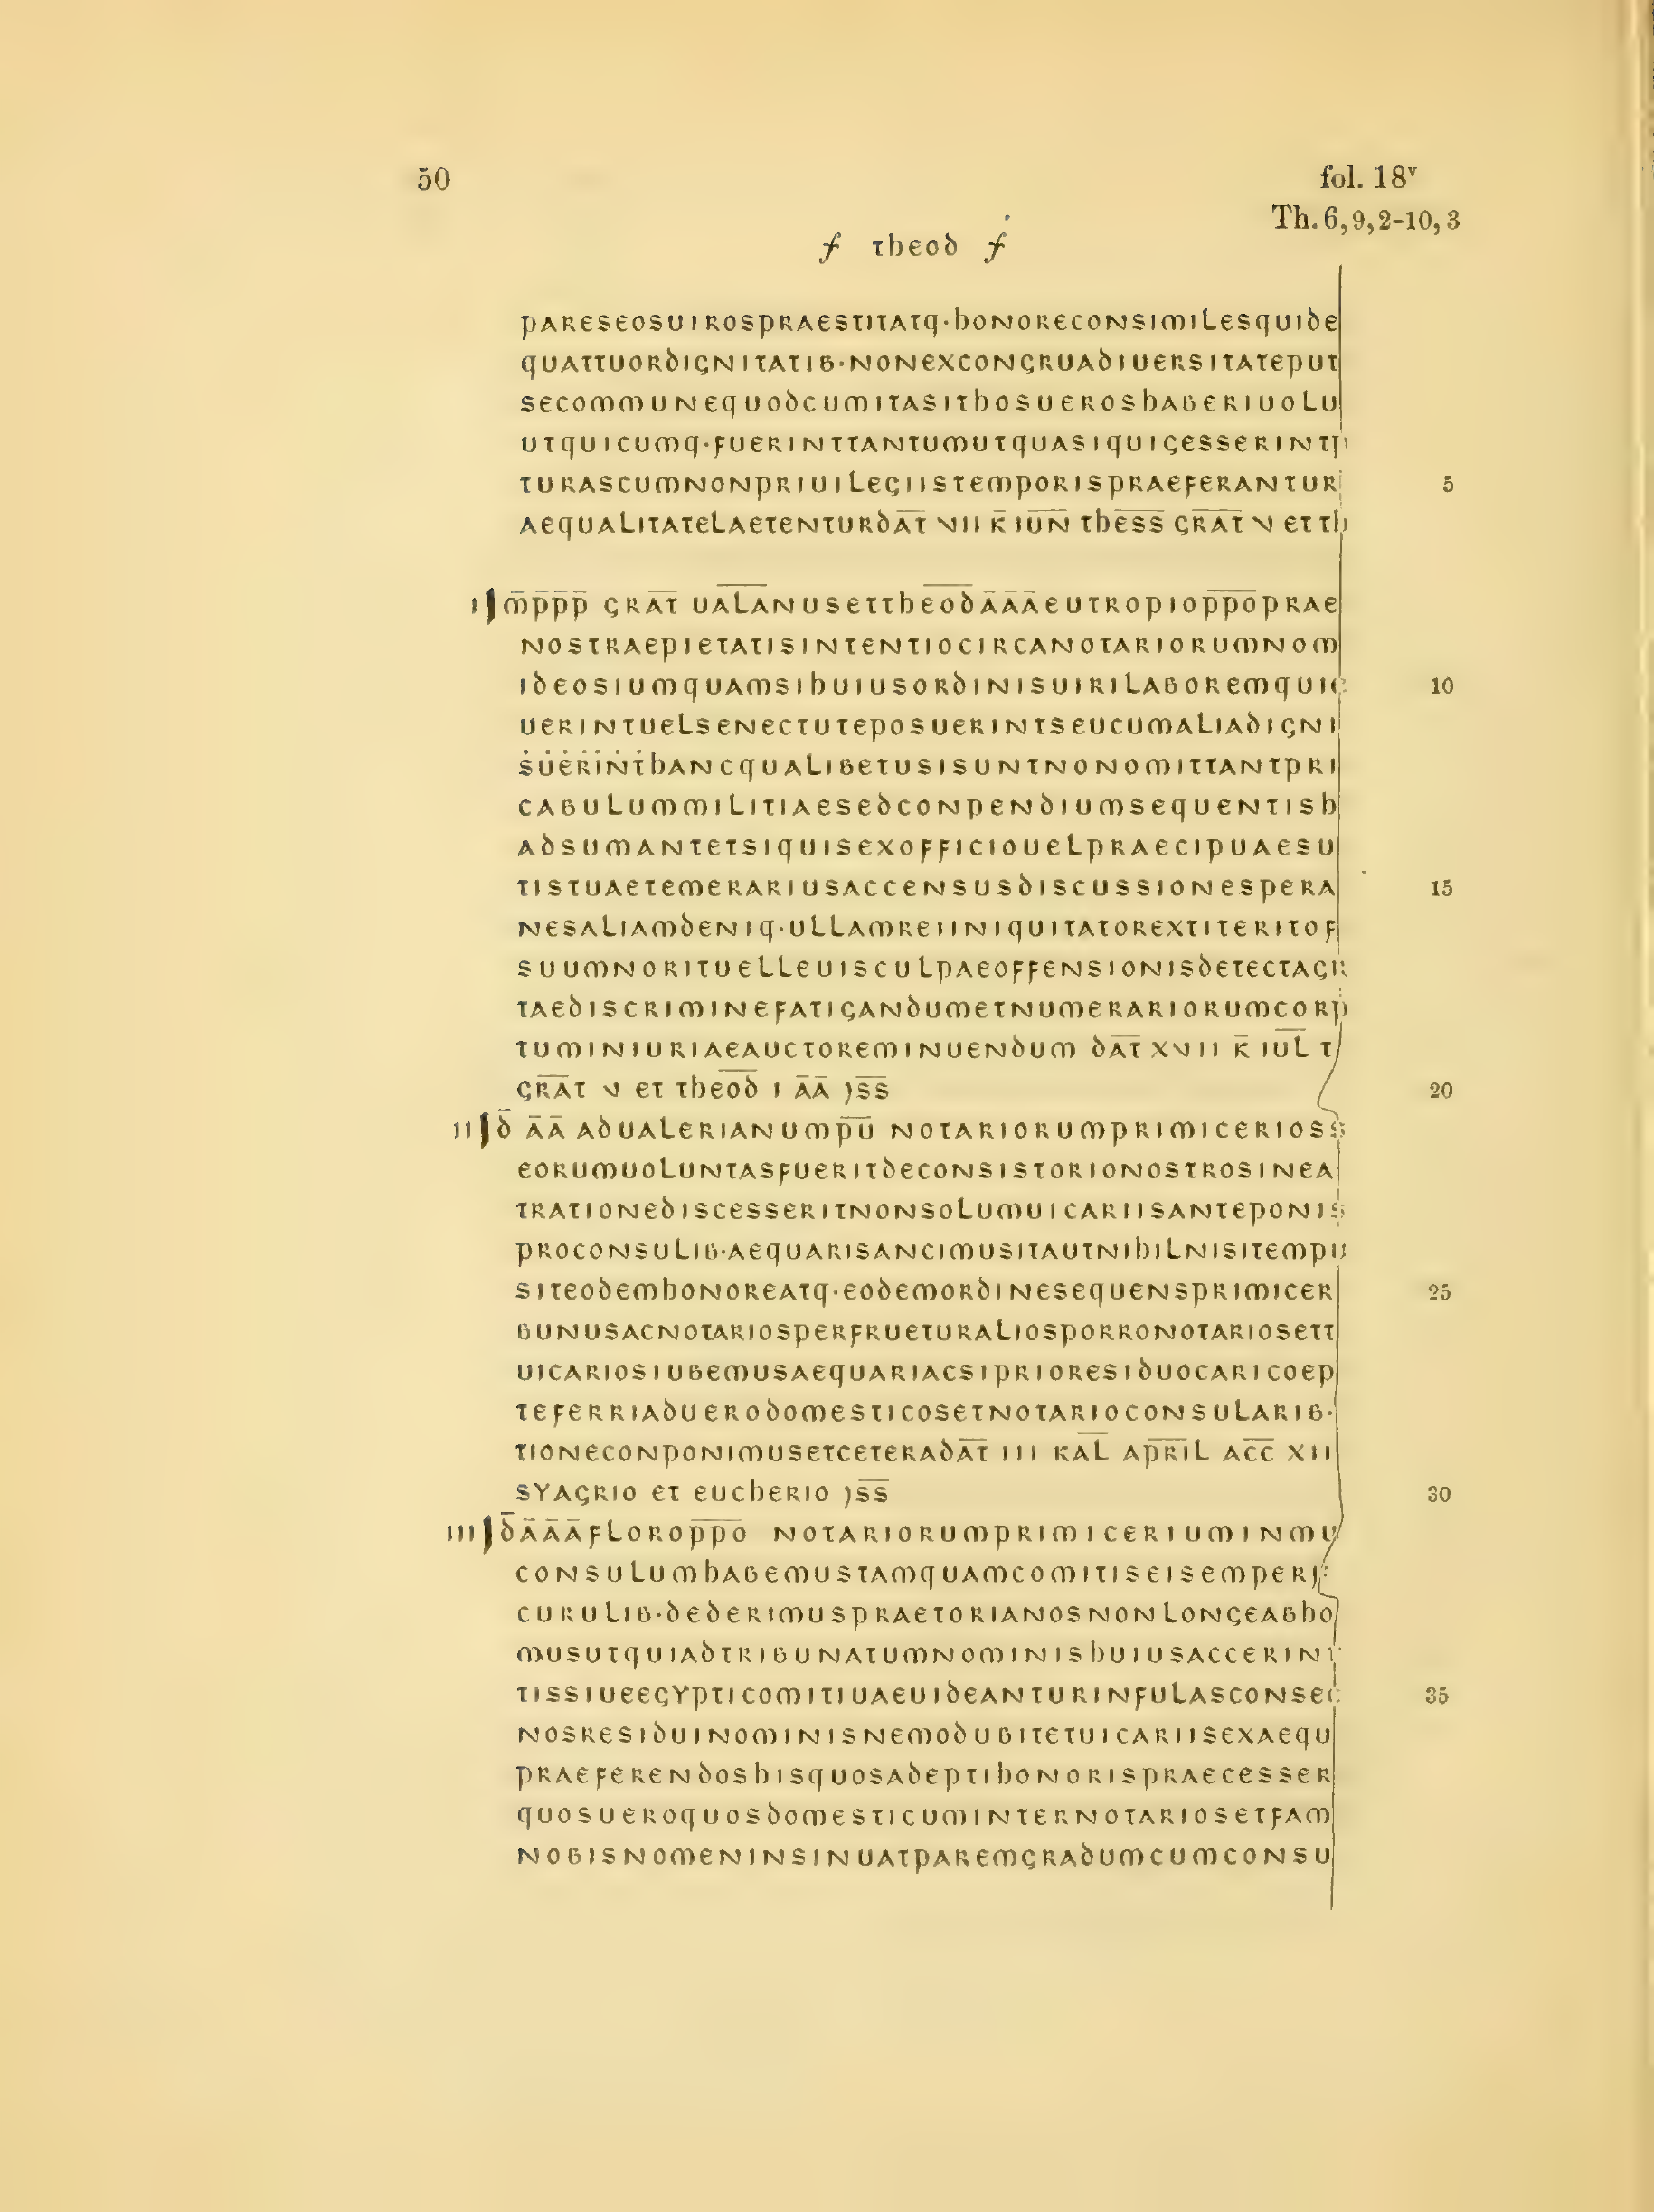 50
fol. 18v
Th. 6, 9, 2-10, 3
f theod f
pareseosuirospraestitatq·honoreconsimilesquide
quattuordignitatib·nonexcongruadiuersitateput
secommunequodcumitasithosueroshaberiuolu
utquicumq·fuerinttantumutquasiquigesserintp
turascumnonpriuilegiistemporispraeferantur
5
aequalitatelaetenturdat̅ VII k̅ iun̅ thess̅ grat̅ V et th
I m̅p̅p̅p̅ grat̅ ualanusettheod̅a̅a̅a̅eutropiop̅p̅o̅prae
nostraepietatisintentiocircanotariorumnom
ideosiumquamsihuiusordinisuirilaboremquic
10
uerintuelsenectuteposuerintseucumaliadigni
ṡu̇ėṙi̇ṅṫhancqualibetusisuntnonomittantpri
cabulummilitiaesedconpendiumsequentish
adsumantetsiquisexofficiouelpraecipuaesu
tistuaetemerariusaccensusdiscussionespera
15
nesaliamdeniq·ullamreiiniquitatorextiteritof
suumnorituelleuisculpaeoffensionisdetectagr
taediscriminefatigandumetnumerariorumcorp
tuminiuriaeauctoreminuendum dat̅ XVII k̅ iul̅ t
grat̅ V et theod̅ I a̅a̅ )s̅s̅
20
II d̅ a̅a̅ adualerianump̅u̅ notariorumprimicerioss
eorumuoluntasfueritdeconsistorionostrosinea
trationediscesseritnonsolumuicariisanteponis
proconsulib·aequarisancimusitautnihilnisitempu
siteodemhonoreatq·eodemordinesequensprimicer
25
bunusacnotariosperfrueturaliosporronotariosett
uicariosiubemusaequariacsiprioresiduocaricoep
teferriaduerodomesticosetnotarioconsularib·
tioneconponimusetceteradat̅ III kal̅ april̅ acc̅ XII
syagrio et eucherio )s̅s̅
30
III d̅a̅a̅a̅florop̅p̅o̅ notariorumprimiceriuminmu
consulumhabemustamquamcomitiseisemperi
curulib·dederimuspraetorianosnonlongeabho
musutquiadtribunatumnominishuiusaccerint
tissiueegypticomitiuaeuideanturinfulasconsec
35
nosresiduinominisnemodubitetuicariisexaequ
praeferendoshisquosadeptihonorispraecesser
quosueroquosdomesticuminternotariosetfam
nobisnomeninsinuatparemgradumcumconsu